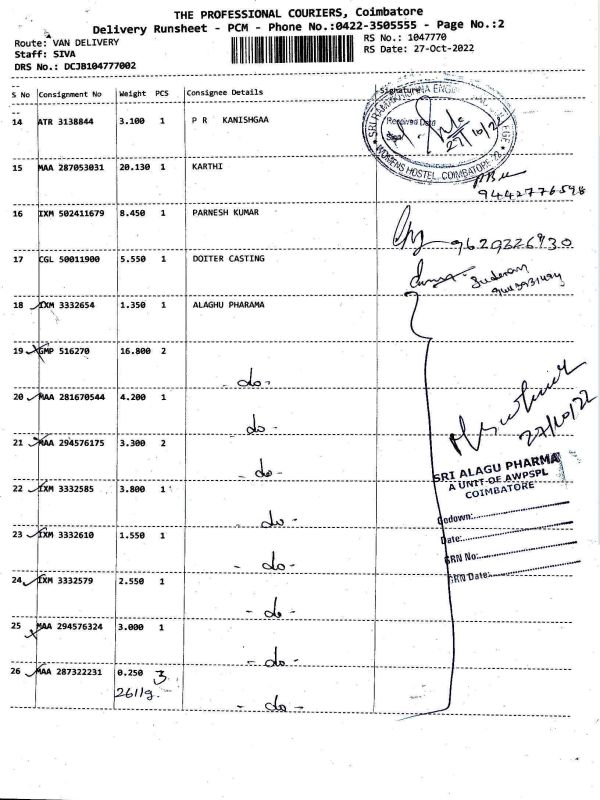 THE PROFESSIONAL COURIERS, Coimbatore
Delivery Runsheet - PCM - Phone No.:0422-3505555 - Page No.:2
Route: VAN DELIVERY
RS No.: 1047770
Staff: SIVA
RS Date: 27-Oct-2022
DRS No.: DCJB104777002
S No Consignment No Weight PCS Consignee Details Signature
14 ATR 3138844 3.100 1 P R KANISHGAA
Received Date
27/10/22
WOMENS HOSTEL, COIMBATORE
15 MAA 287053031 20.130 1 KARTHI
9442776598
16 IXM 502411679 8.450 1 PARNESH KUMAR
9629326930
17 CGL 50011900 5.550 1 DOITER CASTING
18 IXM 3332654 1.350 1 ALAGHU PHARAMA
19 GMP 516270 16.800 2
- do -
20 MAA 281670544 4.200 1
- do -
21 MAA 294576175 3.300 2
- do -
27/10/22
SRI ALAGU PHARMA
A UNIT OF AWPSPL
COIMBATORE
22 IXM 3332585 3.800 1
- do -
Godown:
23 IXM 3332610 1.550 1
Date:
- do -
GRN No:
24 IXM 3332579 2.550 1
GRN Date:
- do -
25 MAA 294576324 3.000 1
- do -
26 MAA 287322231 0.250 3
2611g
- do -